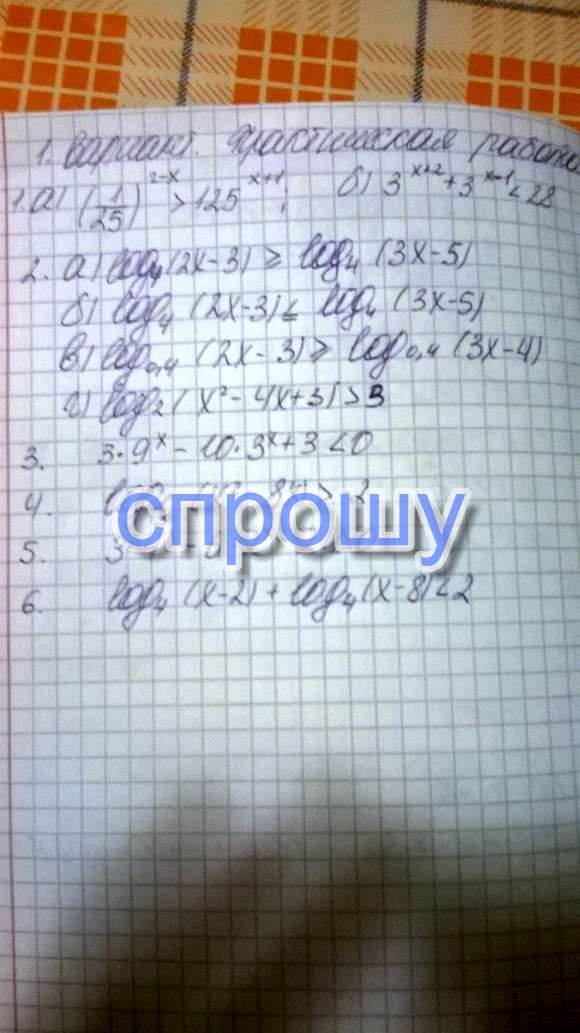 1. Вариант. Практическая работа
1. а) (1/25)^(2-x) > 125^(x+1); б) 3^(x+2) + 3^(x-1) < 28
2. а) log₄ (2x-3) ≥ log₄ (3x-5)
б) log₄ (2x-3) ≤ log₄ (3x-5)
в) log₀,₄ (2x-3) ≥ log₀,₄ (3x-4)
г) log₂ (x²-4x+3) > 3
3. 3·9^x - 10·3^x + 3 < 0
4.
спрошу
5.
6. log₄ (x-2) + log₄ (x-8) < 2